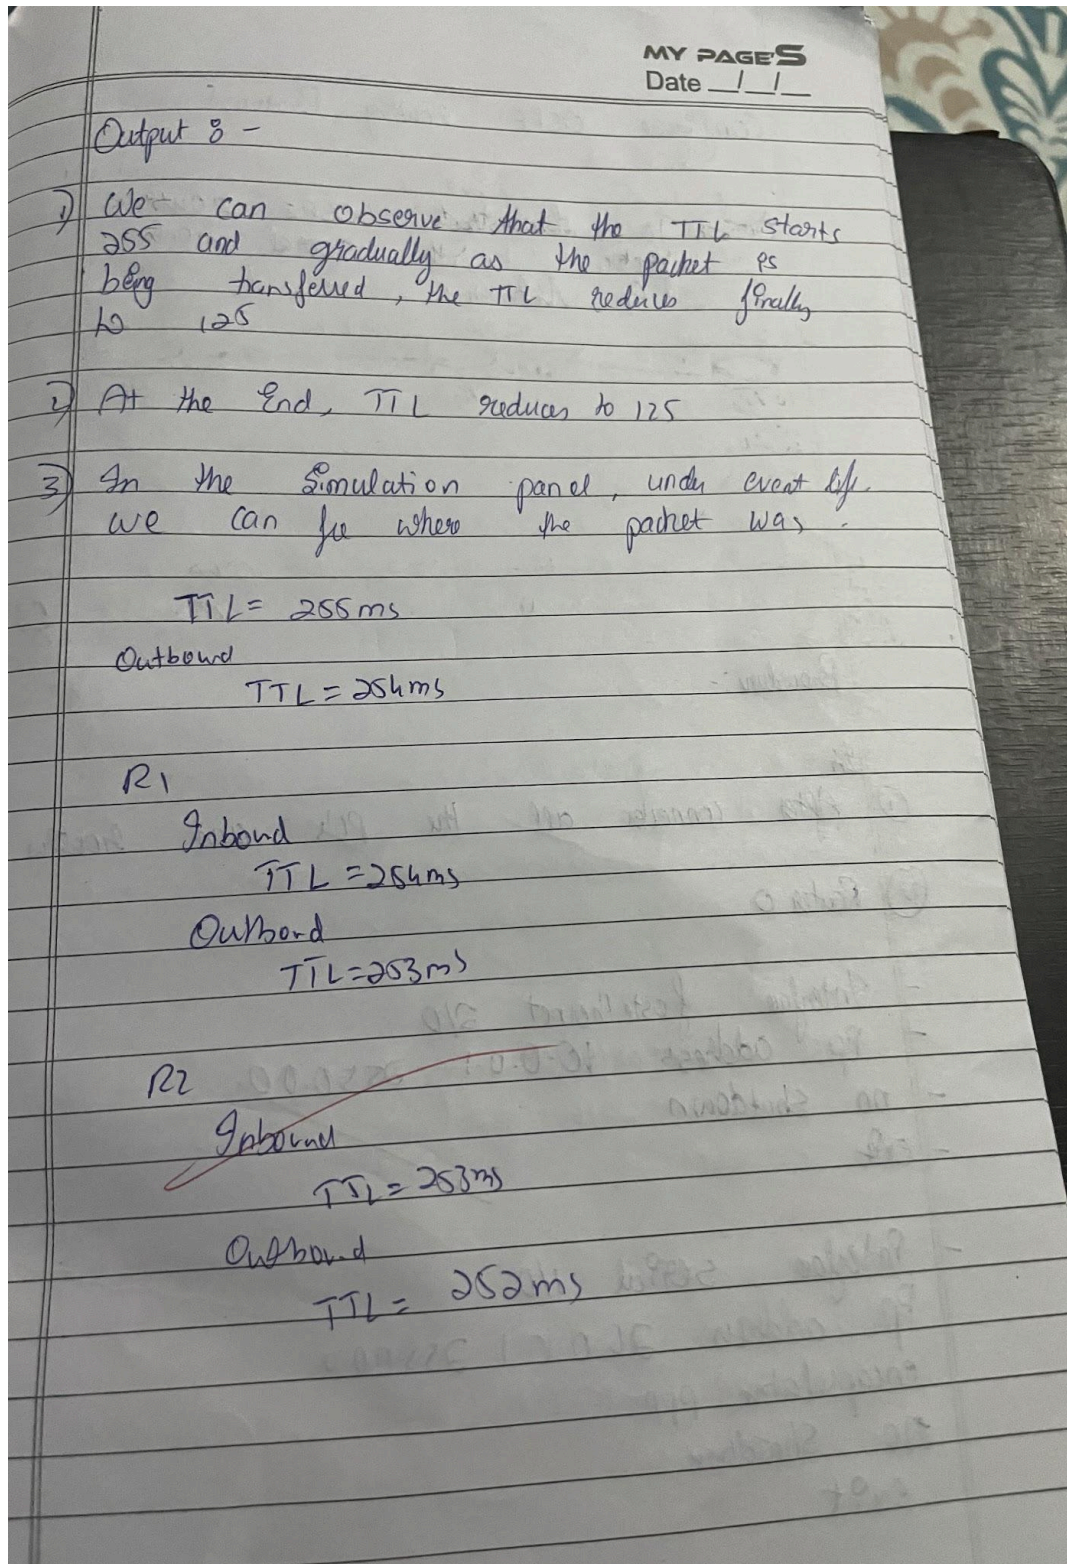 MY PAGE'S
Date _/_/_
Output :-
1) We can observe that the TTL starts
255 and gradually as the packet is
being transferred, the TTL reduces finally
to 125
2) At the End, TTL reduces to 125
3) In the Simulation panel, under event
we can see where the packet was.
TTL = 255ms
Outbound
TTL = 254ms
R1
Inbond
TTL = 254ms
Outbond
TTL = 253ms
R2
Inbound
TTL = 253ms
Outbound
TTL = 252ms